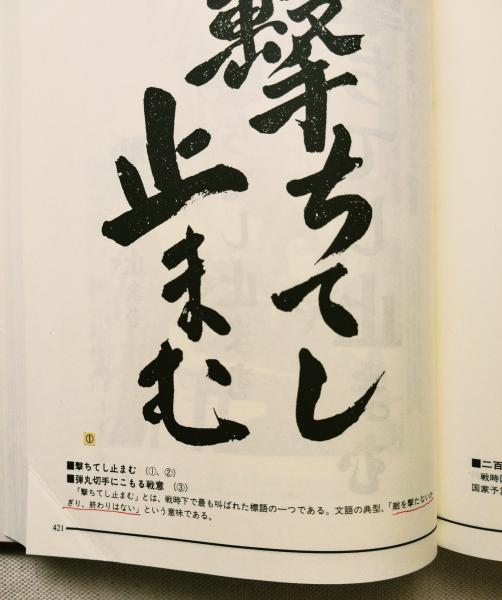 撃ちてし
止まむ
①
■撃ちてし止まむ (①、②)
■弾丸切手にこもる戦意 (③)
「撃ちてし止まむ」とは、戦時下で最も叫ばれた標語の一つである。文語の典型、「敵を撃たないか
ぎり、終わりはない」という意味である。
421
■二百
戦時
国家予